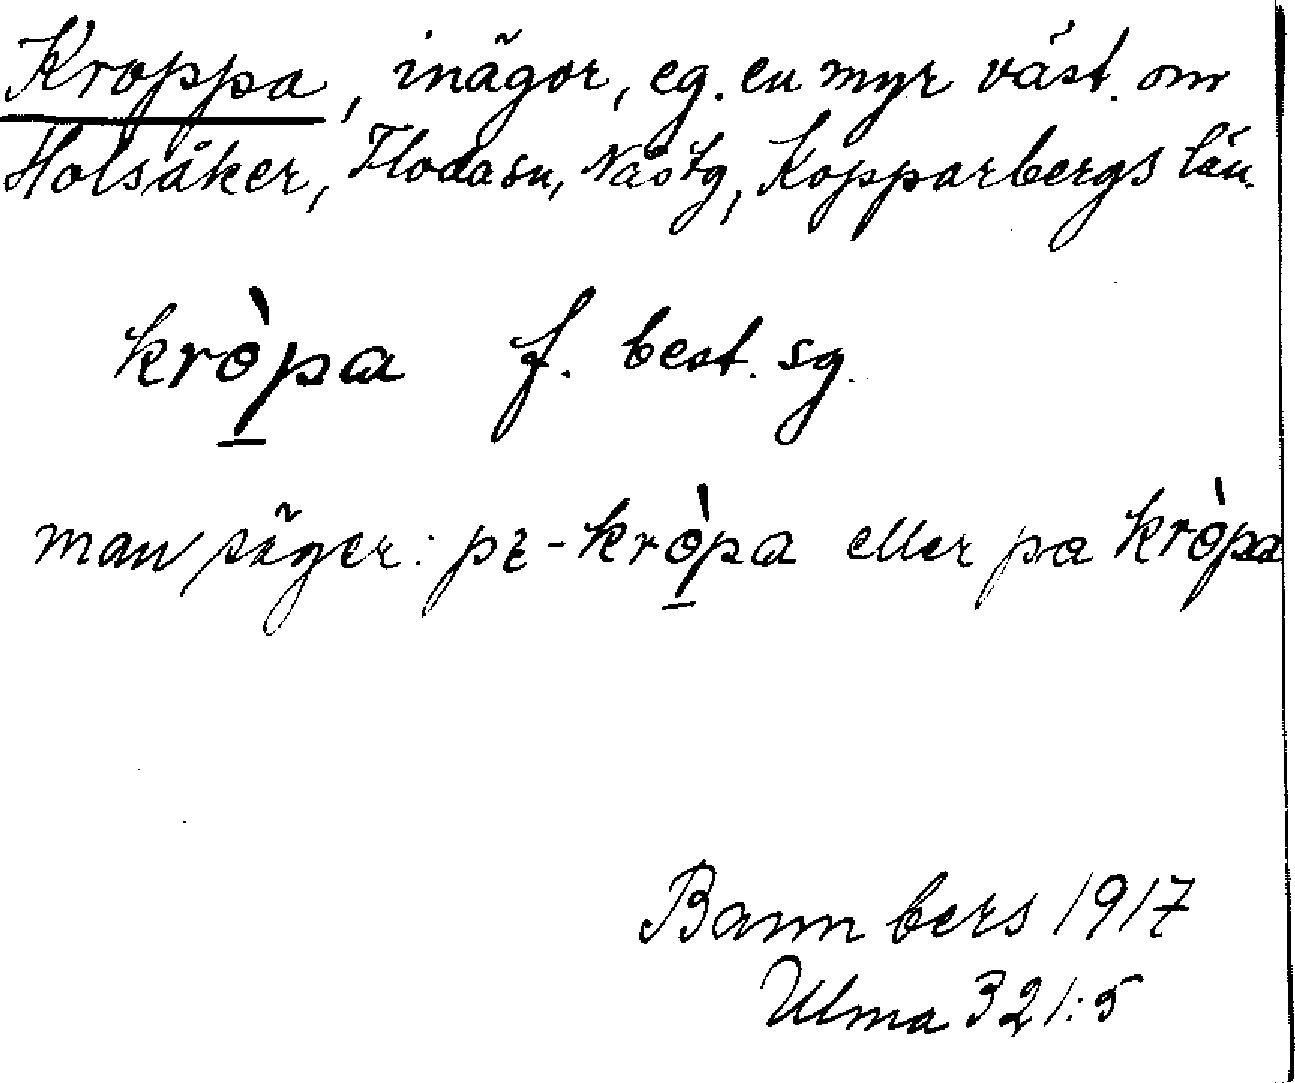 Kroppa, inägor, eg. en myr väst. om
Holsåker, Floda sn, Nåstg, Kopparbergs län.
kròpa f. best. sg.
man säger: pɛ-kròpa eller pa kròpa
Bannbers 1917
Ulma 321:5